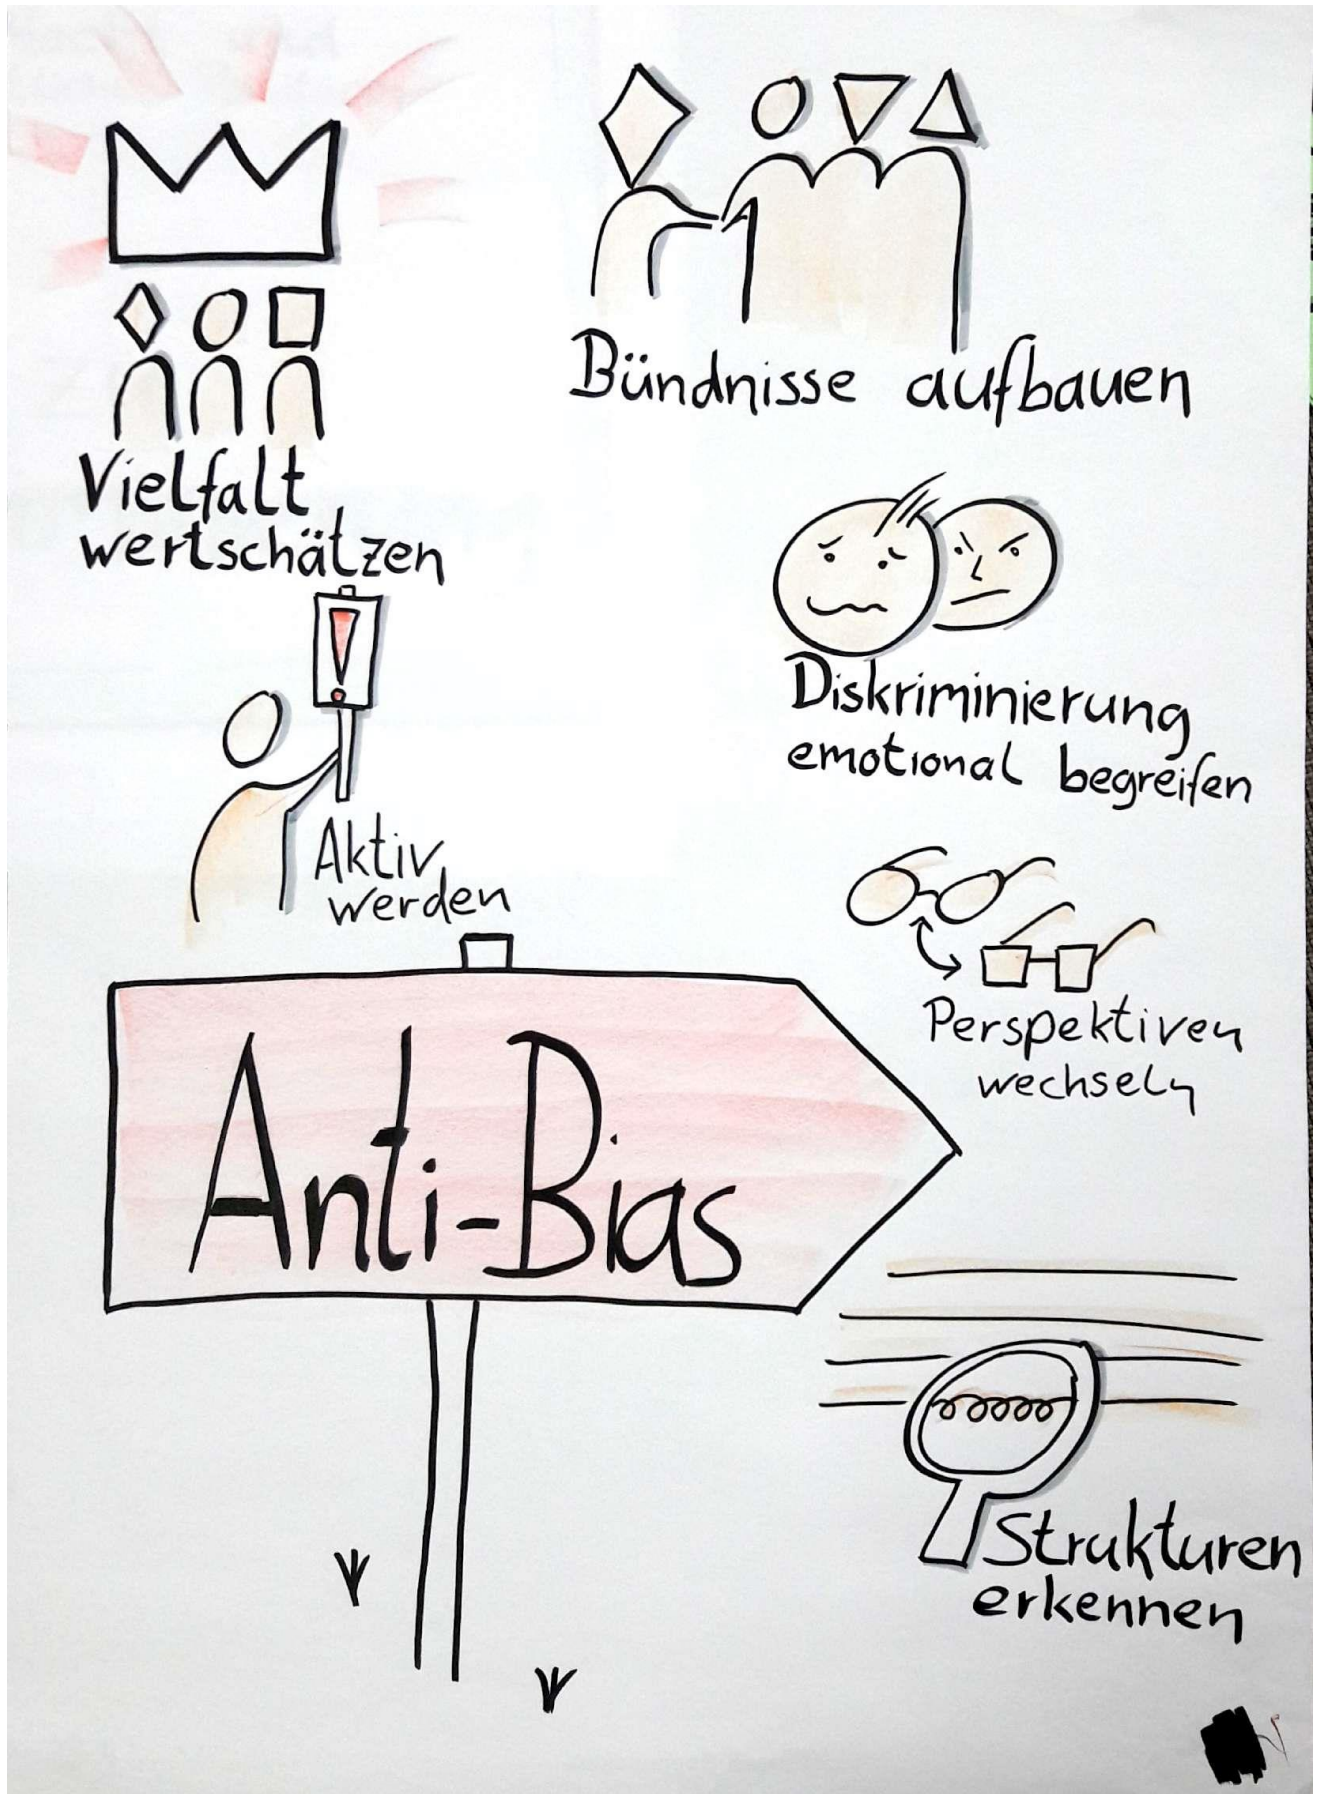 Vielfalt
wertschätzen
Bündnisse aufbauen
Diskriminierung
emotional begreifen
Aktiv
werden
Perspektiven
wechseln
Anti-Bias
Strukturen
erkennen